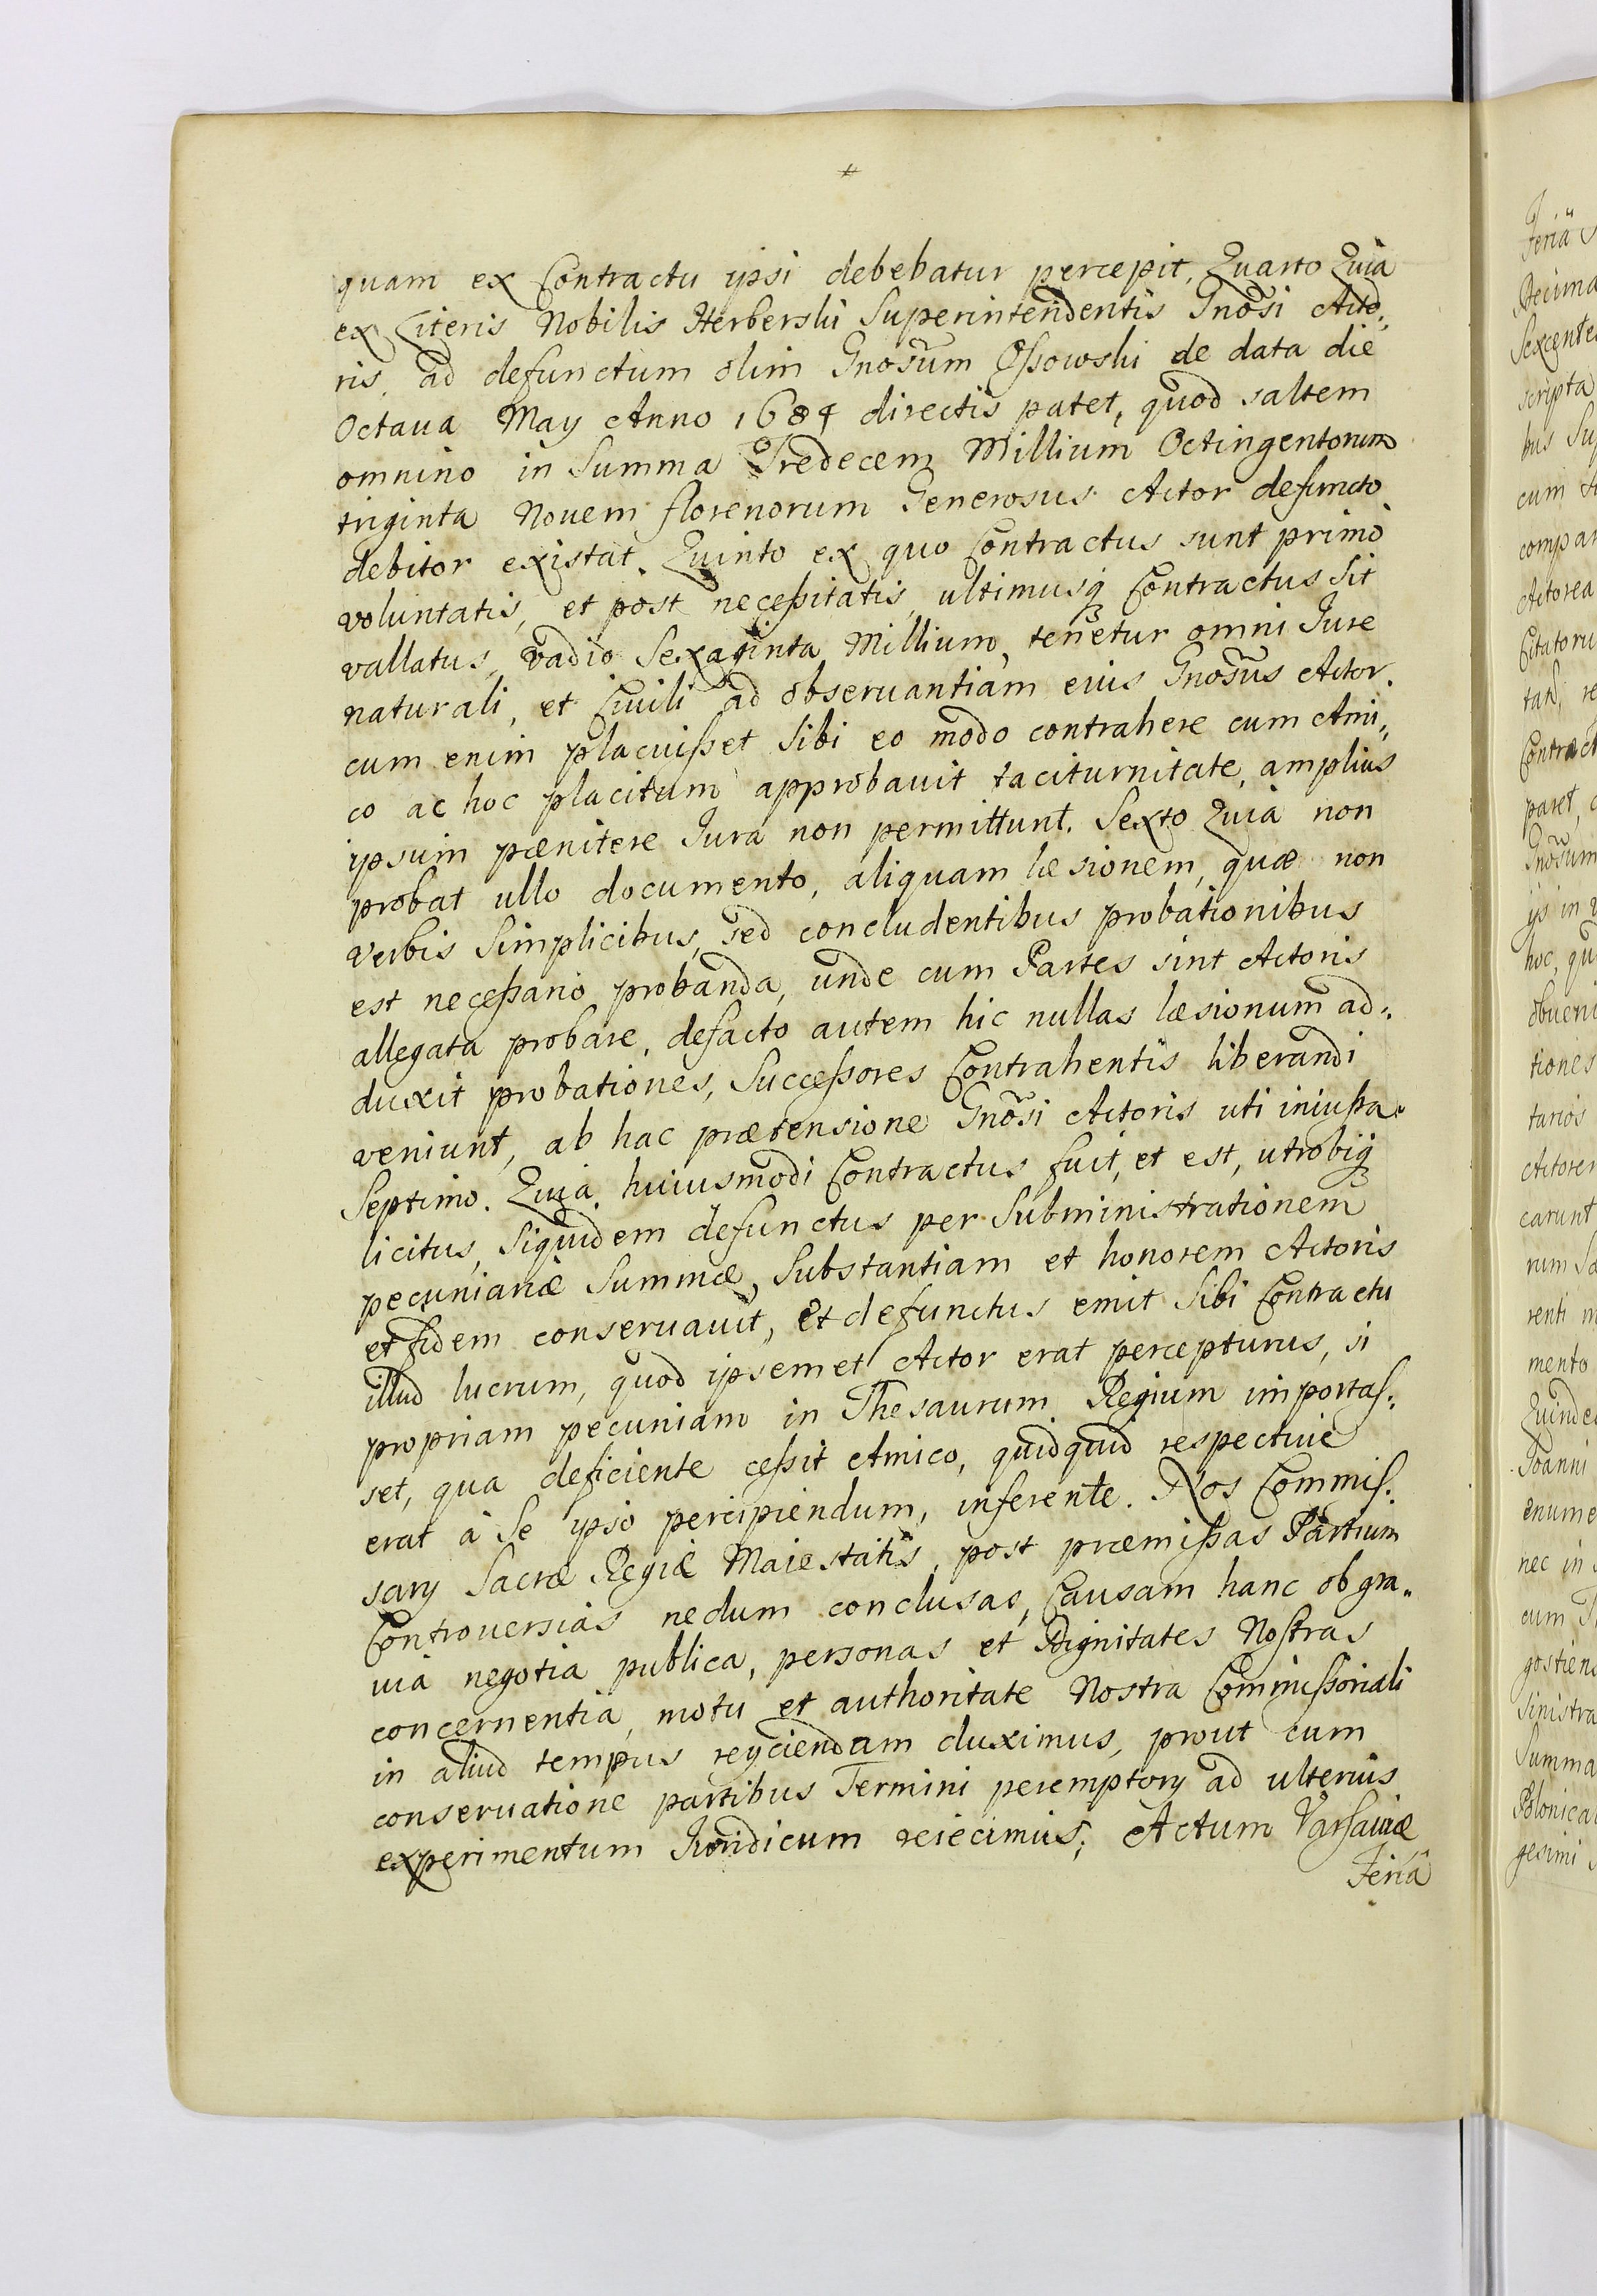 quam ex Contractu ipsi debebatur percepit, Quarto Quia
ex Literis Nobilis Herberski Superintendentis Gnosi Acto„
ris, ad defunctum olim Gnosum Ossowski de data die
Octaua May Anno 1684 directis patet, quod saltem
omnino in Summa Tredecem Millium Octingentorum
triginta Nouem florenorum Generosus Actor defuncto
debitor existat. Quinto ex quo Contractus sunt primo
voluntatis, et post necessitatis, ultimusq Contractus sit
vallatus, vadio Sexaginta Millium, tenetur omni Iure
naturali, et Ciuili ad obseruantiam eius Gnosus Actor.
cum enim placuisset sibi eo modo contrahere cum Ami„
co ac hoc placitum approbauit taciturnitate, amplius
ipsum pænitere Iura non permittunt. Sexto Quia non
probat ullo documento, aliquam læsionem, quæ non
verbis simplicibus, sed concludentibus probationibus
est necessario probanda, unde cum Partes sint Actoris
allegata probare, defacto autem hic nullas læsionum ad„
duxit probationes, Successores Contrahentis liberandi
veniunt, ab hac prætensione Gnosi Actoris uti iniusta.
Septimo. Quia huiusmodi Contractus fuit, et est, utrobiq
licitus, siquidem defunctus per Subministrationem
pecuniariæ Summæ, Substantiam et honorem Actoris
et fidem conseruauit, et defunctus emit sibi Contractu
illud lucrum, quod ipsemet Actor erat percepturus, si
propriam pecuniam in Thesaurum Regium importas„
set, qua deficiente cessit Amico, quidquid respectiue
erat à se ipso percipiendum, inferente. Nos Commis„
sary Sacræ Regiæ Maiestatis, post præmissas Partium
Controuersias nedum conclusas, Causam hanc ob gra„
uia negotia publica, personas et Dignitates Nostras
concernentia, motu et authoritate Nostra Commissoriali
in aliud tempus reyciendam duximus, prout cum
conseruatione partibus Termini peremptory ad ulterius
experimentum Iuridicum reiecimus; Actum Varsauiæ
Feriâ
Feriâ
Decima
Sexcente
scripta
bus Su
cum
compar
Actorea
Citatoru
Contract
paret,
Gnosum
ijs in
hoc, qu
obueni
tiones
tarios
Actorer
carunt
rum Sa
renti
mento
Quinde
Joanni
enume
nec in
cum
gostien
sinistra
Summa
Polonica
gesimi